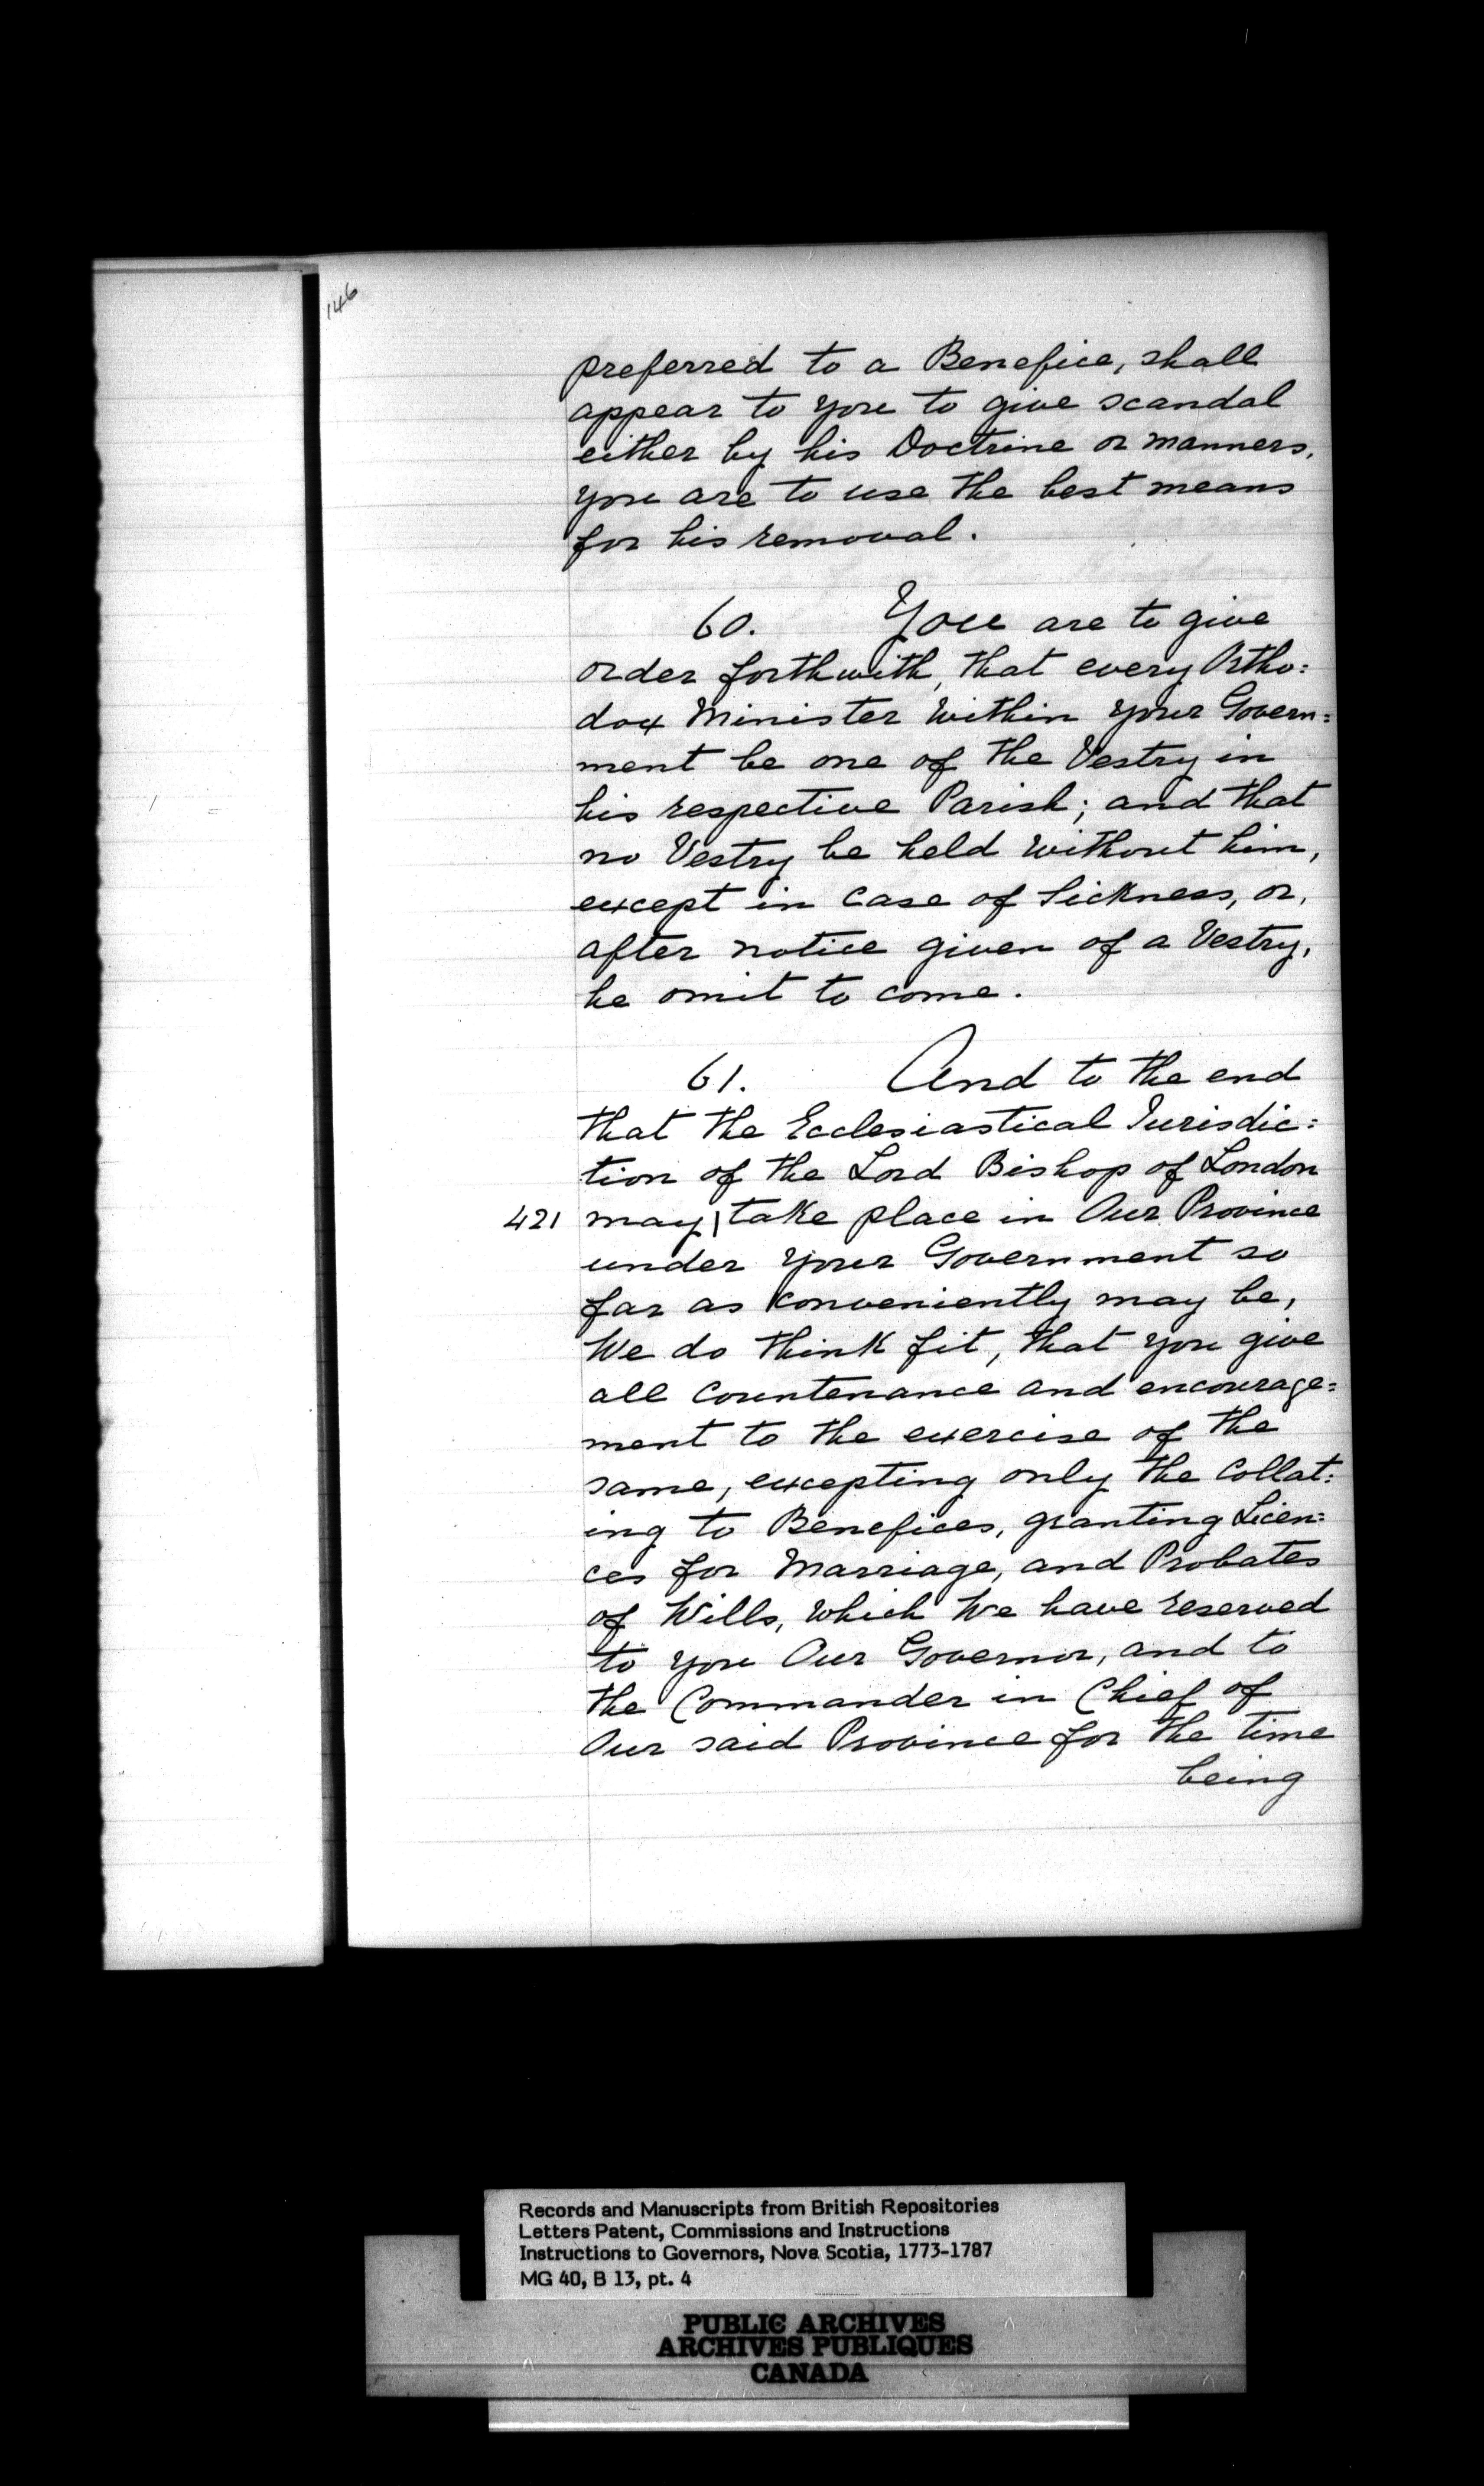 146
preferred to a Benefice, shall
appear to you to give scandal
either by his Doctrine or manners,
you are to use the best means
for his removal.
60. You are to give
order forthwith, that every Ortho=
dox Minister within your Govern=
ment be one of the Vestry in
his respective Parish; and that
no Vestry be held without him,
except in case of Sickness, or,
after notice given of a Vestry,
he omit to come.
61. And to the end
that the Ecclesiastical Jurisdic=
tion of the Lord Bishop of London
421 may | take place in Our Province
under your Government so
far as conveniently may be,
We do think fit, that you give
all Countenance and encourage=
ment to the exercise of the
same, excepting only the Collat=
ing to Benefices, granting Licen=
ces for Marriage, and Probates
of Wills, which We have reserved
to you Our Governor, and to
the Commander in Chief of
Our said Province for the time
being
Records and Manuscripts from British Repositories
Letters Patent, Commissions and Instructions
Instructions to Governors, Nova Scotia, 1773-1787
MG 40, B 13, pt. 4
PUBLIC ARCHIVES
ARCHIVES PUBLIQUES
CANADA